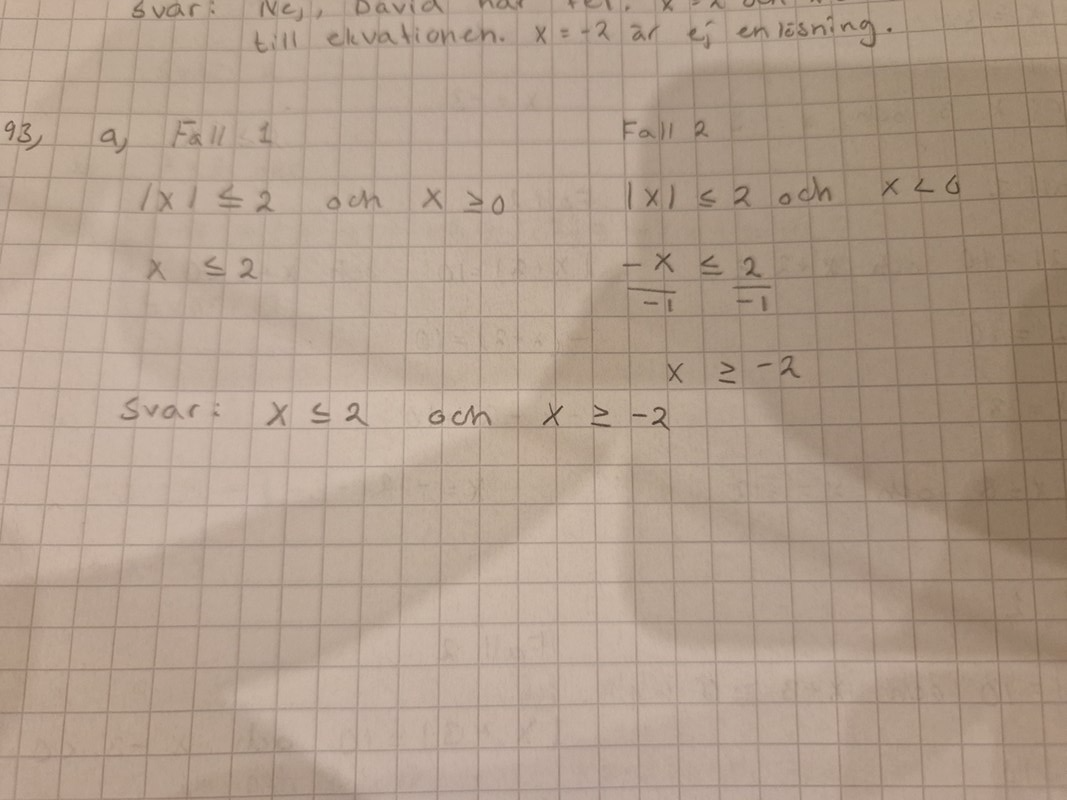 svar: Nej, David har fel. x
till ekvationen. x = -2 är ej en lösning.
93, a, Fall 1 Fall 2
|x| ≤ 2 och x ≥ 0 |x| ≤ 2 och x < 0
x ≤ 2 -x/-1 ≤ 2/-1
x ≥ -2
Svar: x ≤ 2 och x ≥ -2